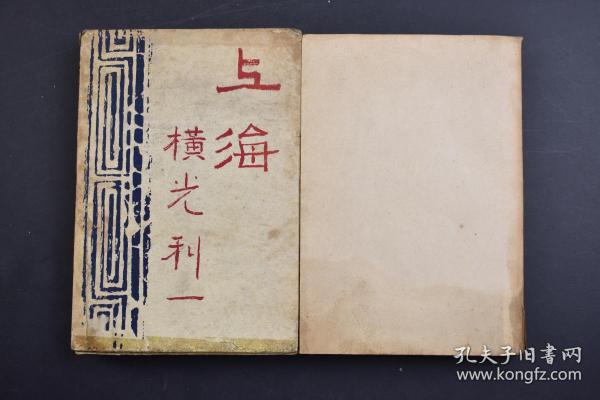 上海
横光利一
孔夫子旧书网
www.kongfz.com